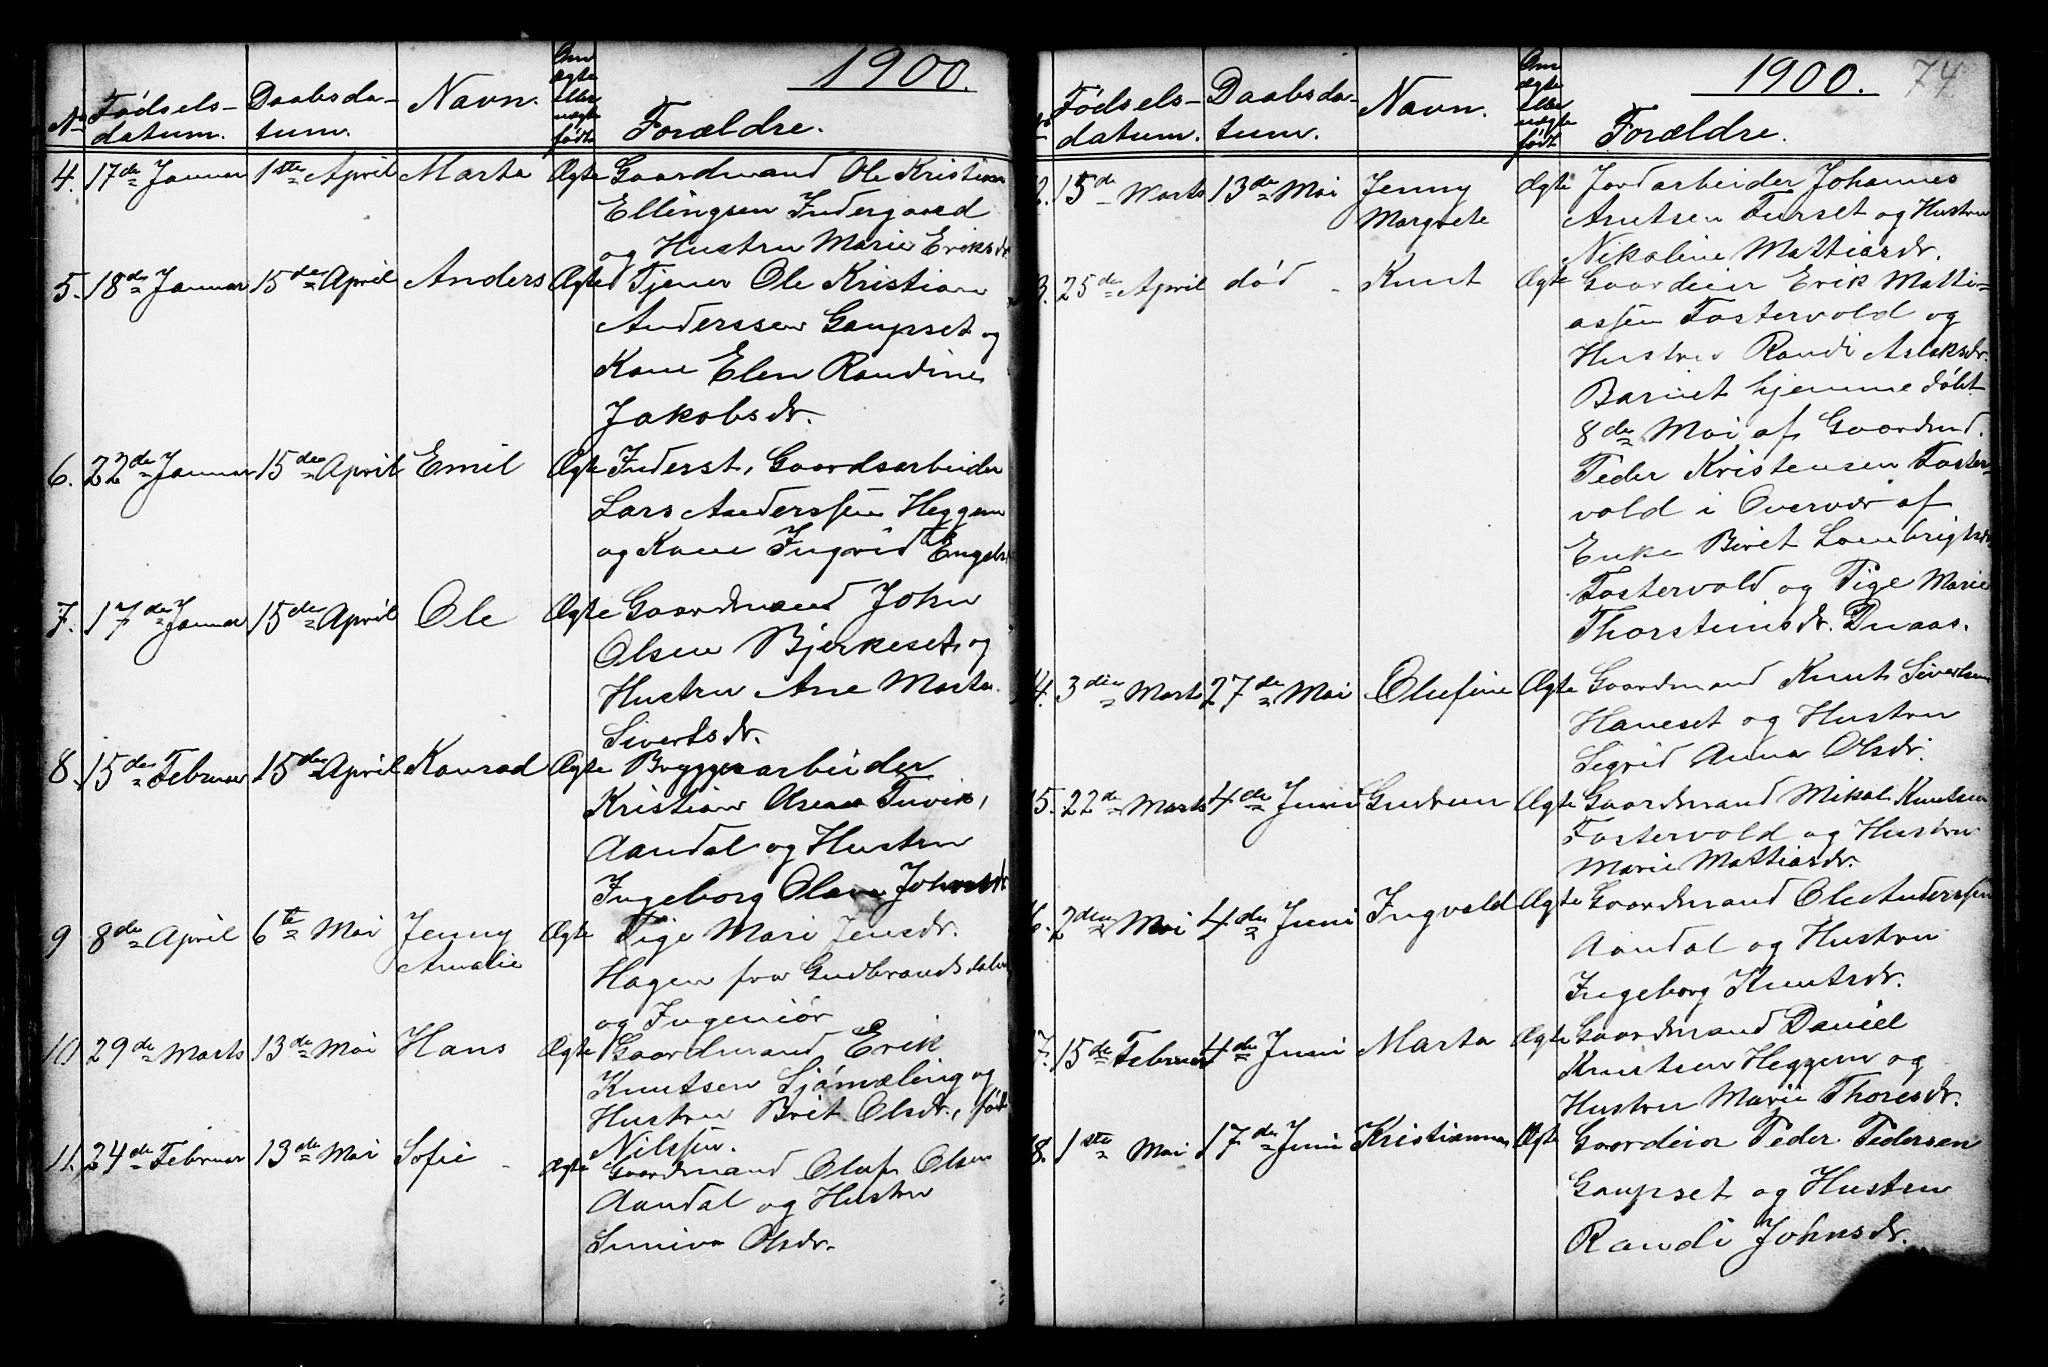 1900.
No Fødsels- Daabsda- Navn. Om ægte eller uægte født Forældre.
datum. tum.
4. 17de Januar 1ste April Marta Ægte Gaardmand Ole Kristian
Ellingsen Indergaard
og Hustru Marie Eriksdr.
5. 18de Januar 15de April Anders Ægte Tjener Ole Kristian
Anderssen Gaupset og
Kone Elen Randine
Jakobsdr.
6. 22de Januar 15de April Emil Ægte Inderst, Gaardsarbeider
Lars Anderssen Heggem
og Kone Ingrid
7. 17de Januar 15de April Ole Ægte Gaardmand John
Olsen Bjerkeset og
Hustru Ane Marta
Sivertsdr.
8. 15de Februar 15de April Konrad Ægte Bryggearbeider
Kristian Olsen Tuvik,
Aandal og Hustru
Ingeborg Olava
9 8de April 6te Mai Jenny Ægte Pige Mari Jensdr.
Amalie
Hagen fra Gudbrandsdalen
og Ingeniør
10 29de Marts 13de Mai Hans Ægte Gaardmand Erik
Knutsen Sjømæling og
Hustru Brit Olsdr., født
Nilssen.
11. 24de Februar 13de Mai Sofie Ægte Gaardmand Oluf Olsen
Aandal og Hustru
Suniva Olsdr.
1900. 74
Fødsels- Daabsda- Navn. Om ægte eller uægte født Forældre.
datum. tum.
2. 15de Marts 13de Mai Jenny Ægte Jordarbeider Johannes
Margrete Knutsen Furset og Hustru
Nikoline Mattiasdr.
3. 25de April død - Knut Ægte Gaardeier Erik Matti-
assen Tastervold og
Hustru Randi Aslaksdr.
Barnet hjemmedøbt
8de Mai af Gaardmd.
Peder Kristensen Taster-
vold i Overvær af
Enke Beret
Tastervold og Pige Marie
Thorsteinsdr.
4. 3die Marts 27de Mai Olufine Ægte Gaardmand Knut Sivertsen
Haneset og Hustru
Sigrid Anna Olsdr.
15. 22de Marts 4de Juni Gudrun Ægte Gaardmand Mikal Knutsen
Tastervold og Hustru
Marie Mattiasdr.
6. 2den Mai 4de Juni Ingvald Ægte Gaardmand Ole Anderssen
Aandal og Hustru
Ingeborg Knutsdr.
7. 15de Februar 4de Juni Marta Ægte Gaardmand Daniel
Knutsen Heggem og
Hustru Marie Thoresdr.
8. 1ste Mai 17de Juni Kristianna Ægte Gaardeier Peder Pedersen
Gaupset og Hustru
Randi Johnsdr.